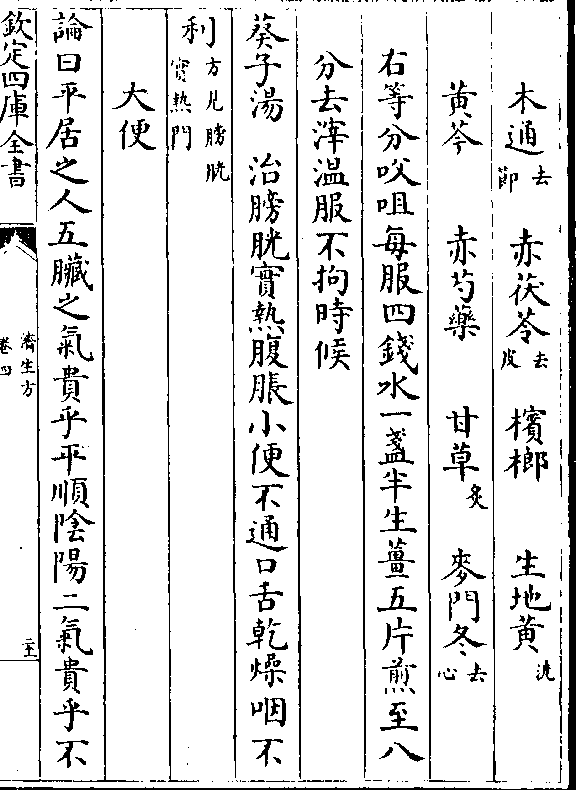 木通去節　赤茯苓去皮　檳榔　生地黄洗
黄芩　赤芍藥　甘草炙　麥門冬去心
右等分㕮咀每服四錢水一盞半生薑五片煎至八
分去滓温服不拘時候
葵子湯　治膀胱實熱腹脹小便不通口舌乾燥咽不
利方見膀胱實熱門
大便
論曰平居之人五臟之氣貴乎平順陰陽二氣貴乎不
欽定四庫全書
濟生方
卷四